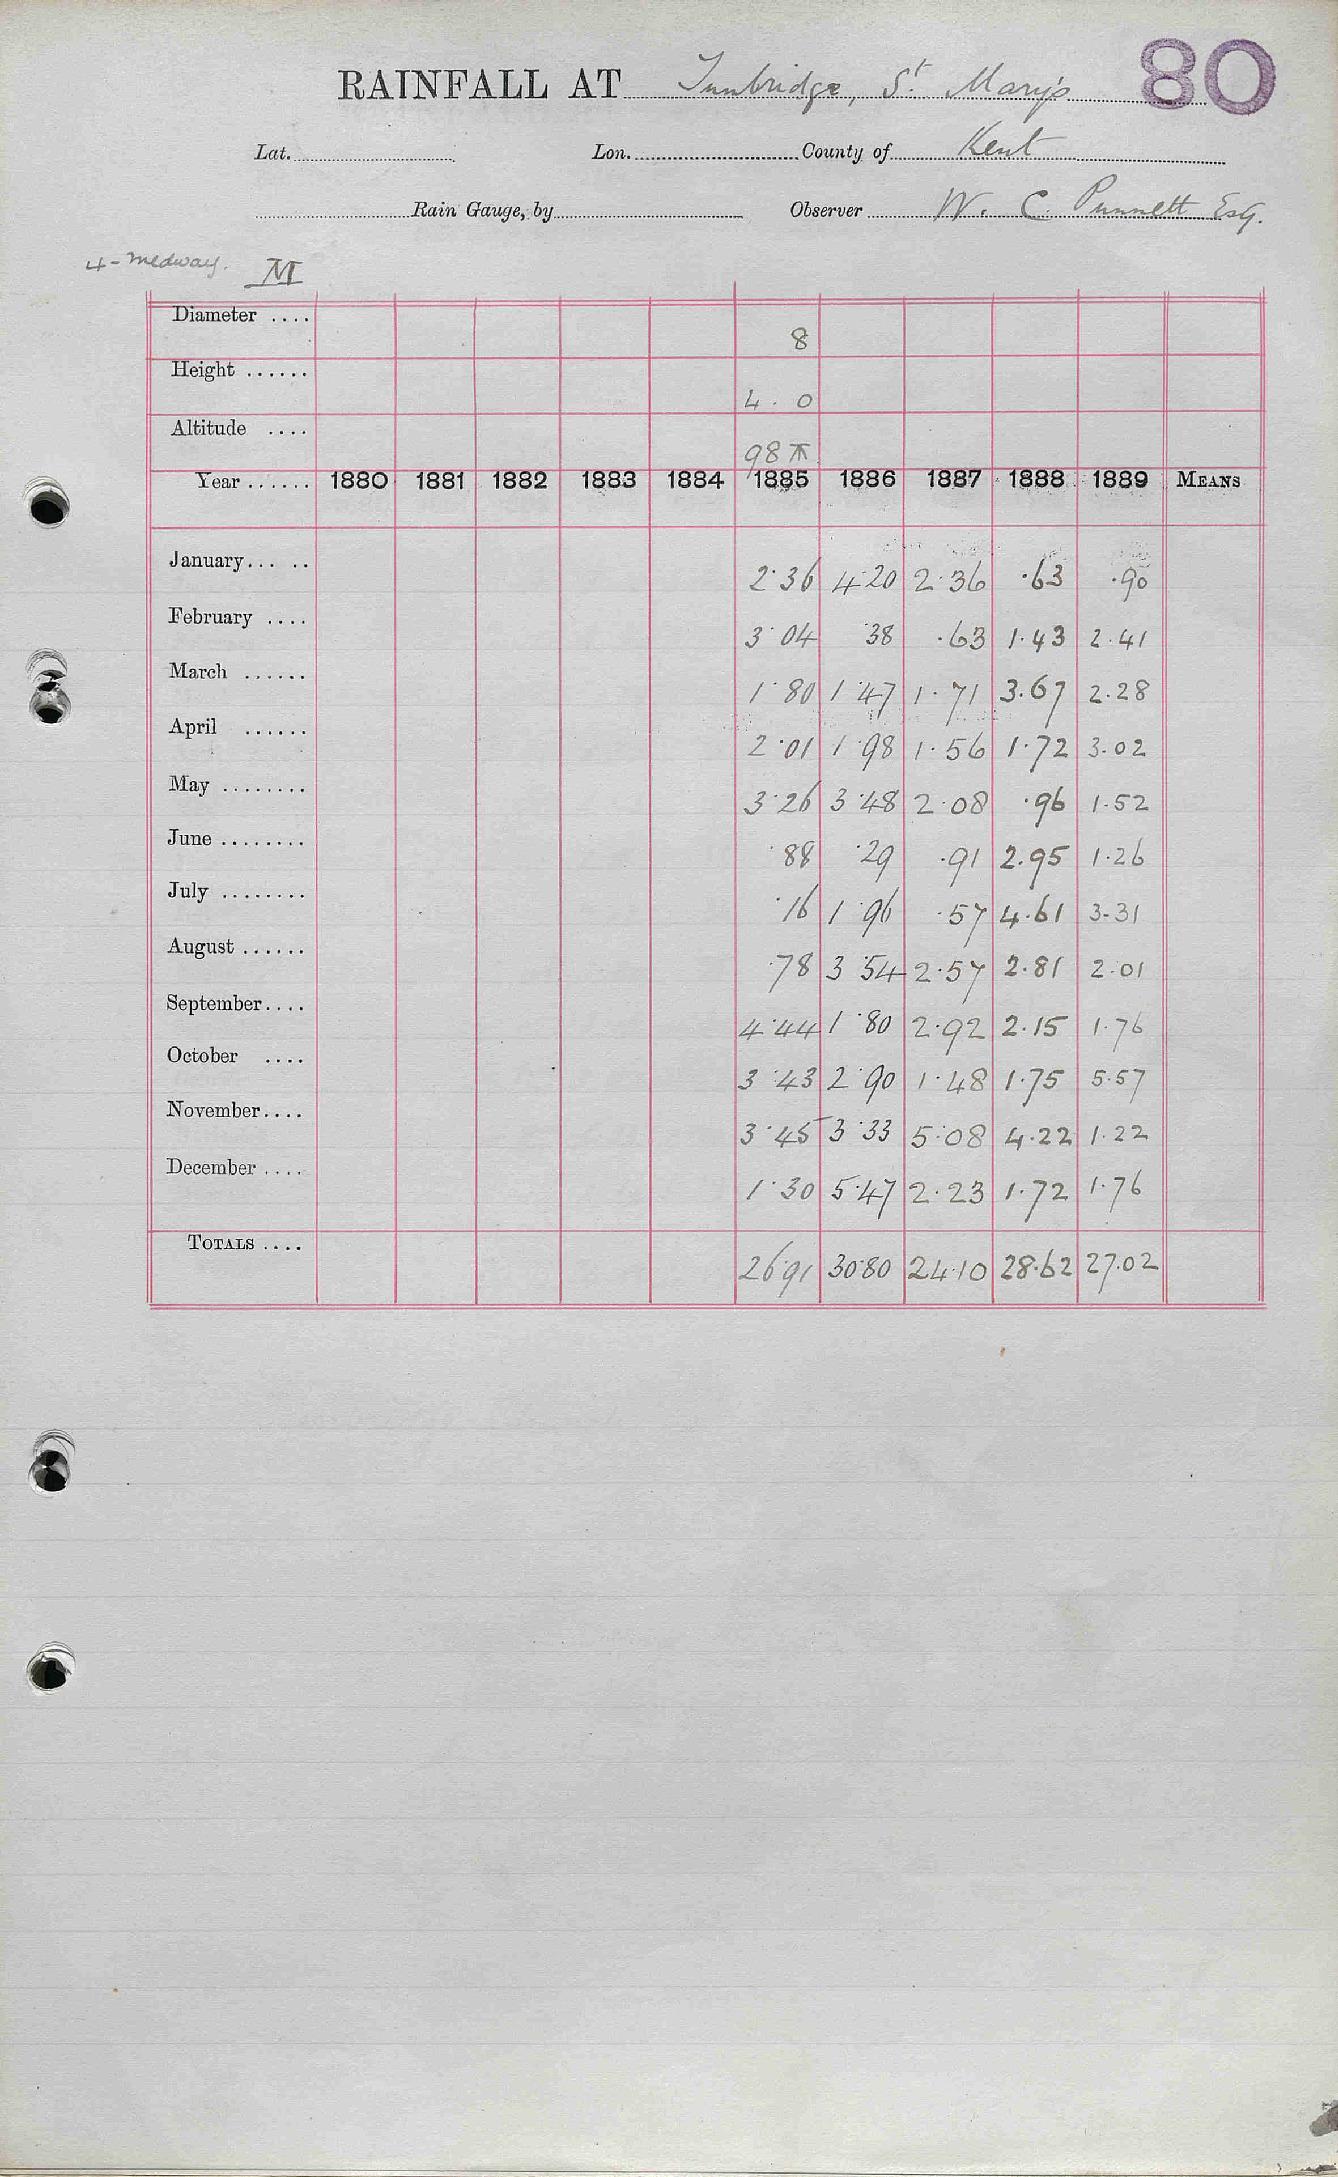 80
RAINFALL AT Tunbridge, St. Mary's
Lat. Lon. County of Kent
Rain Gauge, by Observer W. C. Punnett Esq.
4 - Medway. M
Diameter .... 8
Height ...... 4 . 0
Altitude .... 98
Year ...... 1880 1881 1882 1883 1884 1885 1886 1887 1888 1889 MEANS
January... .. 2.36 4.20 2.36 .63 .90
February .... 3.04 38 .63 1.43 2.41
March ...... 1.80 1.47 1.71 3.67 2.28
April ...... 2.01 1.98 1.56 1.72 3.02
May ........ 3.26 3.48 2.08 .96 1.52
June ........ .88 .29 .91 2.95 1.26
July ........ .16 1.96 .57 4.61 3.31
August ...... .78 3.54 2.57 2.81 2.01
September.... 4.44 1.80 2.92 2.15 1.76
October .... 3.43 2.90 1.48 1.75 5.57
November.... 3.45 3.33 5.08 4.22 1.22
December .... 1.30 5.47 2.23 1.72 1.76
TOTALS .... 26.91 30.80 24.10 28.62 27.02